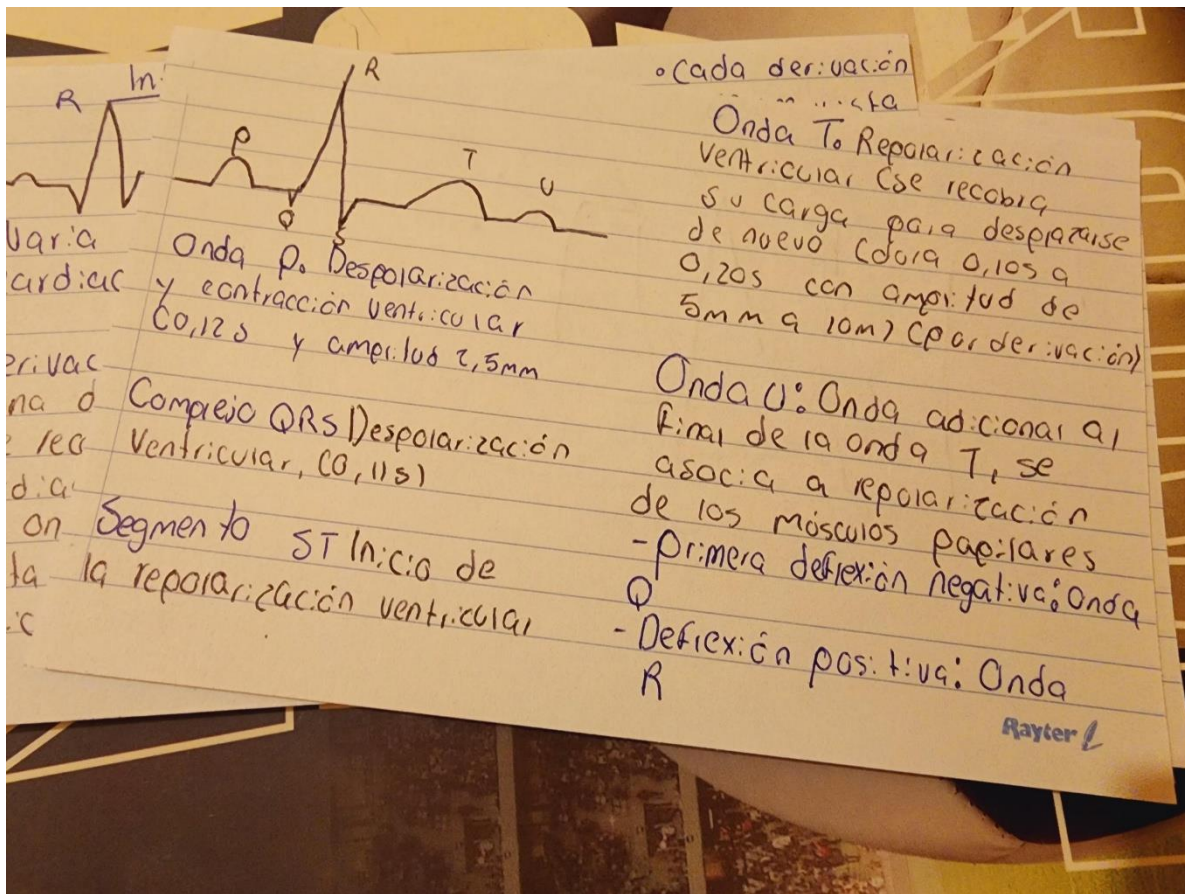 R
In
Varia
ardiac
erivac
na d
e rea
dia
on
ta
ic
R
P
T
U
Q
S
Onda P. Despolarización
y contracción ventricular
(0,12s y amplitud 2,5mm
Complejo QRS Despolarización
Ventricular, (0,11s)
Segmento ST Inicio de
la repolarización ventricular
•Cada derivación
Onda T. Repolarización
ventricular (se recobra
su carga para desplazarse
de nuevo (dura 0,10s a
0,20s con amplitud de
5mm a 10m) (por derivación)
Onda U: Onda adicional al
final de la onda T, se
asocia a repolarización
de los músculos papilares
-primera deflexión negativa: Onda
Q
- Deflexión positiva: Onda
R
Rayter